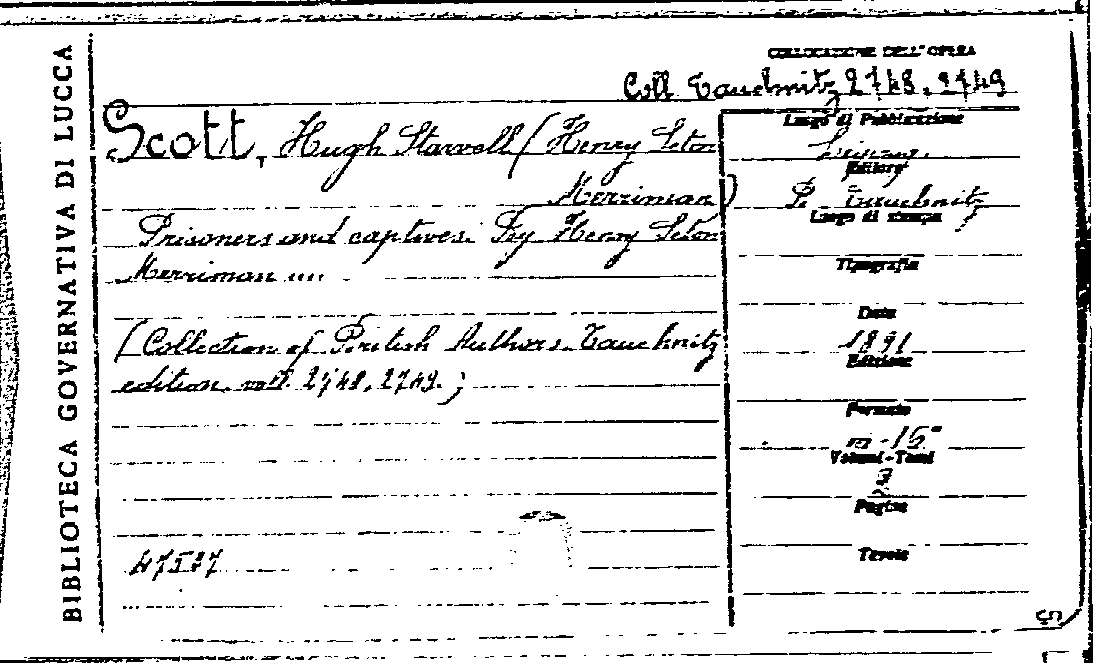 BIBLIOTECA GOVERNATIVA DI LUCCA
COLLOCAZIONE DELL'OPERA
Coll Tauchnitz 2748, 2749
Scott, Hugh Stowell (Henry Seton
Merriman)
Prisoners and captives. By Henry Seton
Merriman ....
(Collection of British Authors. Tauchnitz
edition. voll. 2748, 2749.)
47577
Luogo di Pubblicazione
Leipzig.
Editore
B. Tauchnitz
Luogo di stampa
Tipografia
Data
1891
Edizione
Formato
in-16°
Volumi-Tomi
2
Pagine
Tavole